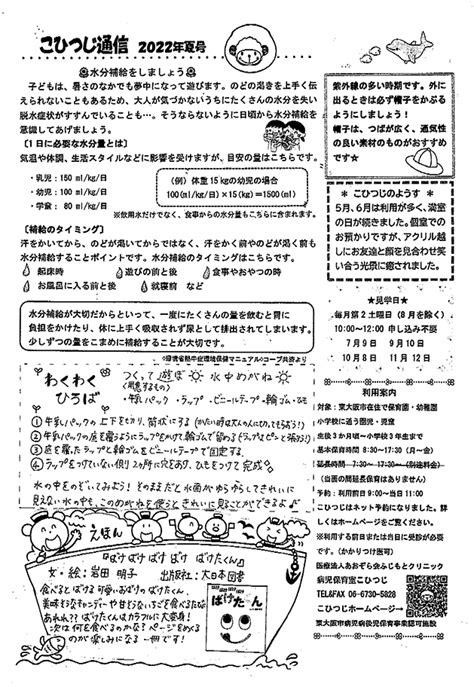 こひつじ通信 2022年夏号
水分補給をしましょう
子どもは、暑さのなかでも夢中になって遊びます。のどの渇きを上手く伝
えられないこともあるため、大人が気づかないうちにたくさんの水分を失い
脱水症状がすすんでいることも…。そうならないように日頃から水分補給を
意識してあげましょう。
【1日に必要な水分量とは】
気温や体調、生活スタイルなどに影響を受けますが、目安の量はこちらです。
・乳児：150 ml/kg/日
・幼児：100 ml/kg/日
・学童： 80 ml/kg/日
（例）体重15kgの幼児の場合
100(ml/kg/日)×15(kg)＝1500(ml)
※飲用水だけでなく、食事からの水分量もこちらに含まれます。
【補給のタイミング】
汗をかいてから、のどが渇いてからではなく、汗をかく前やのどが渇く前も
水分補給することポイントです。水分補給のタイミングはこちらです。
起床時 遊びの前と後 食事やおやつの時
お風呂に入る前と後 就寝前 など
水分が大切だからといって、一度にたくさんの量を飲むと胃に
負担をかけたり、体に上手く吸収されず尿として排出されてしまいます。
少しずつの量をこまめに補給することが大切です。
◎環境省熱中症環境保健マニュアル◎コープ共済より
紫外線の多い時期です。外に
出るときは必ず帽子をかぶる
ようにしましょう！
帽子は、つばが広く、通気性
の良い素材のものがおすすめ
です★
＊こひつじのようす＊
5月、6月は利用が多く、満室
の日が続きました。個室での
お預かりですが、アクリル越
しにお友達と顔を見合わせ笑
い合う光景に癒されました。
★見学日★
毎月第2土曜日（8月を除く）
10:00〜12:00 申し込み不要
7月9日 9月10日
10月8日 11月12日
利用案内
対象：東大阪市在住で保育園・幼稚園
小学校に通う園児・児童
生後3か月〜小学校3年生まで
基本保育時間 8:30〜17:30（月〜金）
延長時間 7:30〜 17:30〜（別途料金）
（当面の間延長保育はありません）
予約：利用前日9:00〜当日11:00
こひつじはネット予約になりました。詳
しくはホームページをご覧ください。
※利用する前日または当日に受診が必要
です。（かかりつけ医可）
医療法人あおぞら会ふじもとクリニック
病児保育室こひつじ
TEL&FAX 06-6730-5828
こひつじホームページ→
東大阪市病児病後児保育事業認可施設
わくわく
ひろば
つくって遊ぼ 水中めがね
（用意するもの）
・牛乳パック ・ラップ ・ビニールテープ ・輪ゴム ・ひも
① 牛乳パックの上下を切り、筒状にする（かたい時は大人の人に切ってもらおう！）
② 牛乳パックの底を覆うようにラップをかけて輪ゴムで留める（ラップはピンと張ろう！）
③ 底を覆ったラップと輪ゴムをビニールテープで固定する
④ ラップをつけていない側に2ヶ所に穴をあけ、ひもをつけて完成
水の中をのぞいてみよう！そのままだと水面がゆらゆらしてきれいに
見えない水の中も、このめがねを使うときれいに見ることができるよ♪
えほん
『ばけばけばけばけ ばけたくん』
文・絵：岩田 明子 出版社：大日本図書
食べるとばける可愛いおばけのばけたくん。
美味そうなキャンディーや甘そういちごを食べるたなら
あれれ？？ばけたくんはカラフルに大変身！
次は何を食べるのかな？ページをめくる
のが楽しみになる一冊です！
ばけたーん